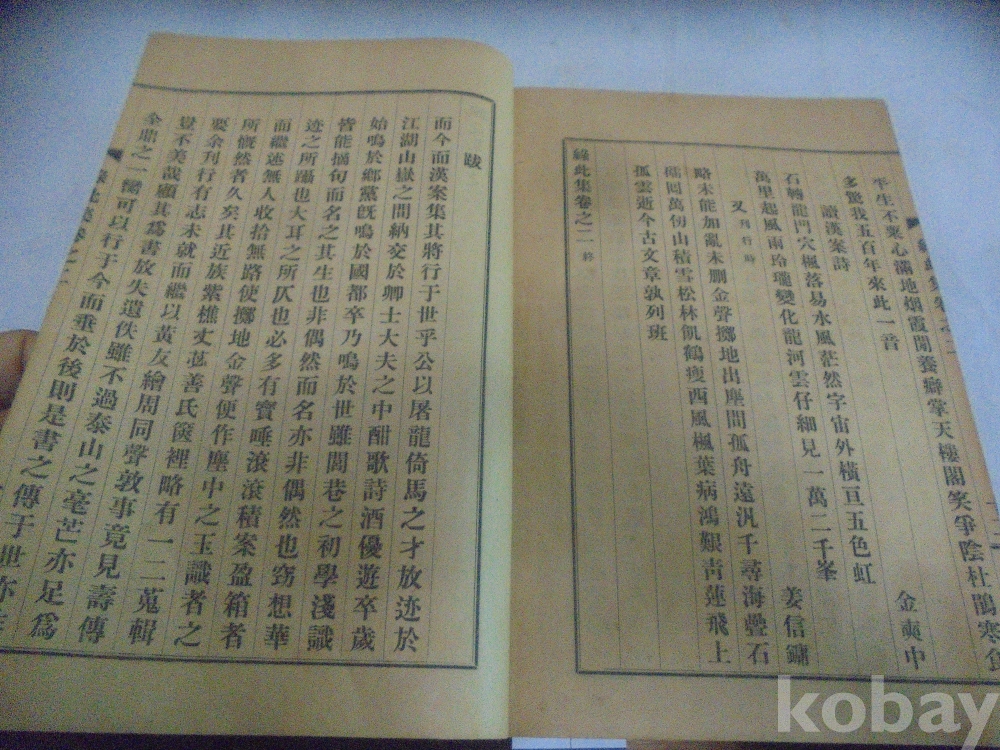 平生不惡心滿地烟霞閒養癖掌天樓閣笑爭陰杜鵑寒食
多驚我五百年來此一音
金奭中
讀漢案詩
石轉龍門穴楓落易水風茫然宇宙外橫亘五色虹
萬里起風雨玲瓏變化龍河雲仔細見一萬二千峯
姜信鏞
又 刊行時
略未能加亂未刪金聲擲地出塵間孤舟遠汎千尋海疊石
萬仞山積雪松林飢鶴瘦西風楓葉病鴻艱靑蓮飛上
孤雲逝今古文章孰列班
綠此集卷之二 終
跋
而今而漢案集其將行于世乎公以屠龍倚馬之才放迹於
江湖山嶽之間納交於卿士大夫之中酣歌詩酒優遊卒歲
始鳴於鄕黨旣鳴於國都卒乃鳴於世雖閭巷之初學淺識
皆能摘句而名之其生也非偶然而名亦非偶然也竊想華
迹之所躡也大耳之所仄也必多有寶唾滾滾積案盈箱者
而繼述無人收拾無路使擲地金聲便作塵中之玉識者之
所慨然者久矣其近族紫樵丈苾善氏篋裡略有一二蒐輯
要余刊行有志未就而繼以黃友繪周同聲敦事竟見壽傳
豈不美哉顧其爲書放失遺佚雖不過泰山之毫芒亦足爲
全鼎之一臠可以行于今而垂於後則是書之傳于世亦
綠此集卷之二
kobay